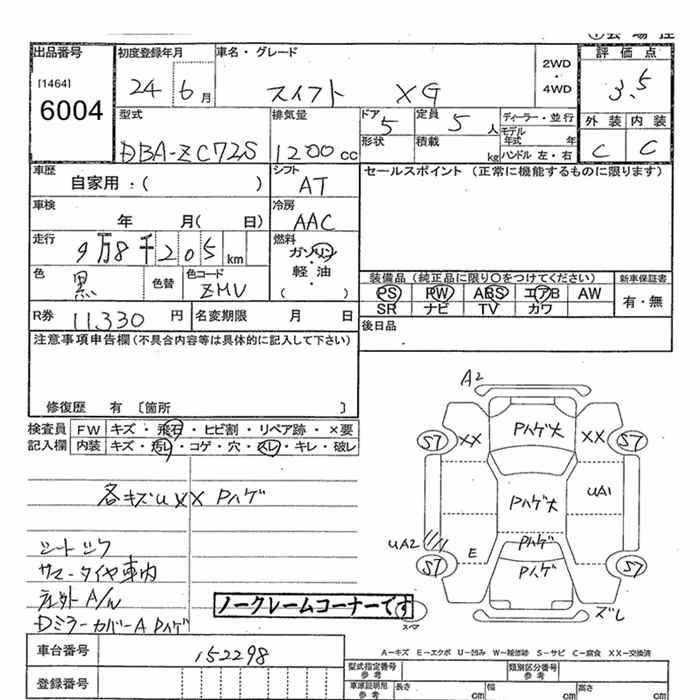 出品番号 初度登録年月 車名・グレード 2WD・4WD 評価点
[1464] 6004 24 6月 スイフト XG 3.5
型式 排気量 ドア 定員 ディーラー・並行 外装 内装
DBA-ZC72S 1200cc 5 5人 モデル年式 年 C C
形状 積載 kg ハンドル 左・右
車歴 シフト セールスポイント (正常に機能するものに限ります)
自家用:( ) AT
車検 冷房
年 月( 日) AAC
走行 燃料
9万8千205km ガソリン・軽油 ( )
色 色替 色コード 装備品 (純正品に限り○をつけてください) 新車保証書
黒 ZMV PS PW ABS エアB AW 有・無
SR ナビ TV カワ
R券 11,330円 名変期限 月 日 後日品
注意事項申告欄(不具合内容等は具体的に記入して下さい)
修復歴 有 〔箇所 〕
検査員 FW キズ・飛石・ヒビ割・リペア跡・×要
記入欄 内装 キズ・汚レ・コゲ・穴・スレ・キレ・破レ
A2
Pハゲ大
S7 XX XX S7
Pハゲ大 UA1
UA2 E Pハゲ
S7 Pハゲ S7
ズレ
スペア
各キズU XX Pハゲ
シートシワ
サマータイヤ車内
社外A/W
Dミラーカバー A Pハゲ
ノークレームコーナーです
車台番号 152298
登録番号
A-キズ E-エクボ U-凹み W-補修跡 S-サビ C-腐食 XX-交換済
型式指定番号 参考 類別区分番号 参考
車庫証明用 参考 長さ cm 幅 cm 高さ cm